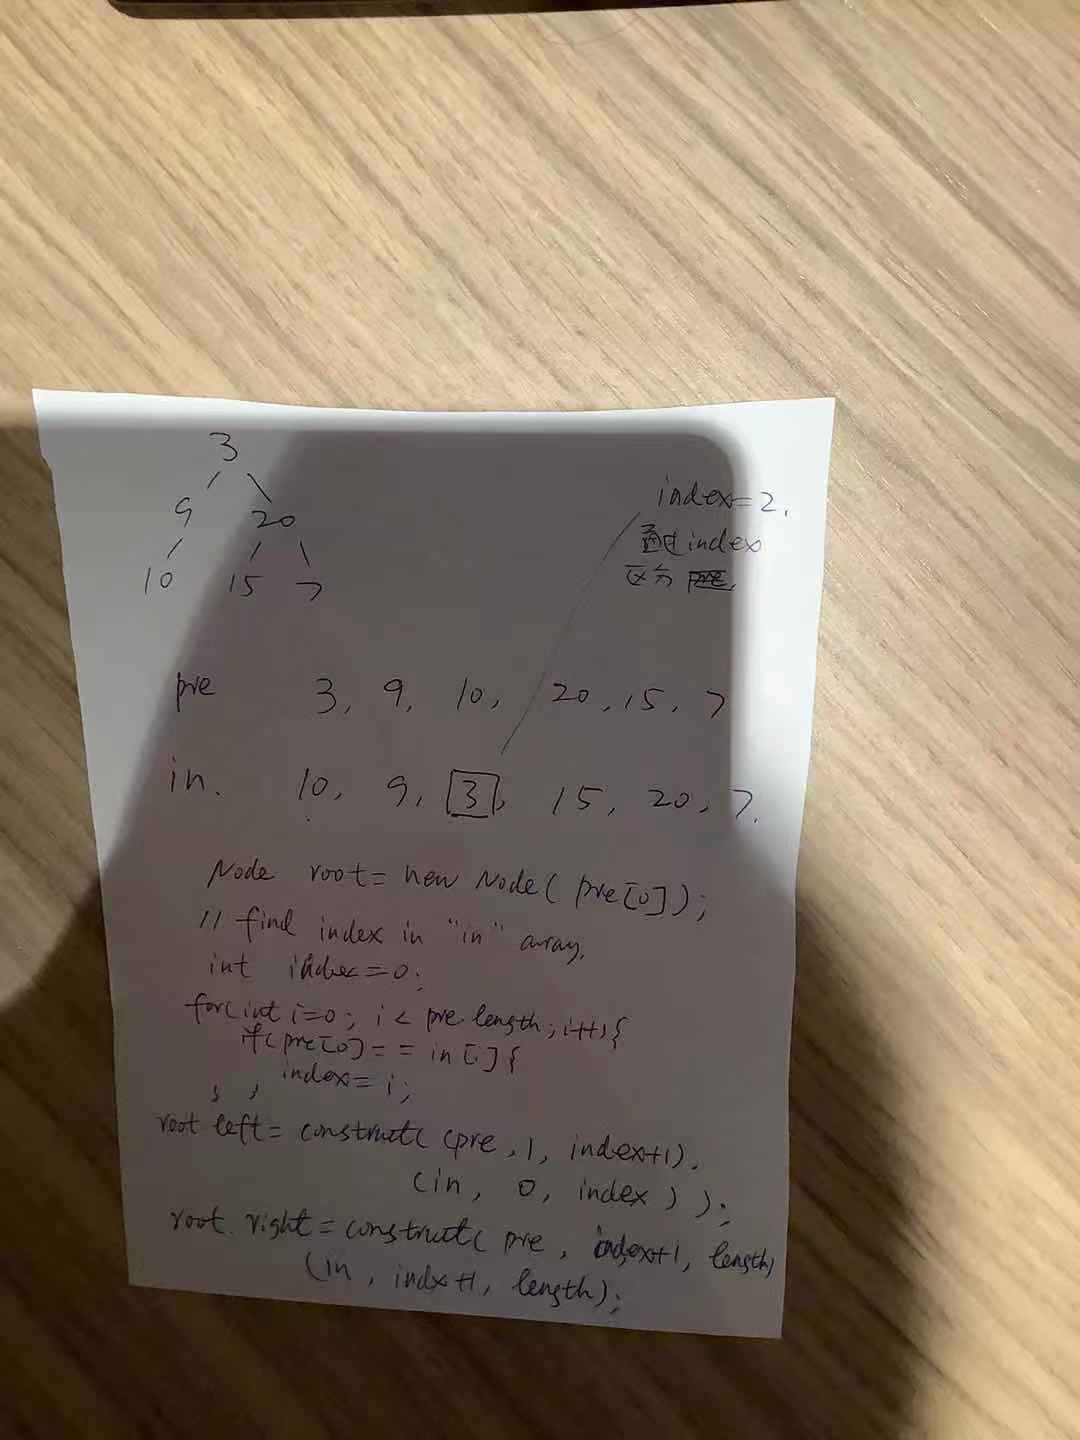 3
9 20
10 15 7
index=2.
通过index
区分 pre.
pre 3, 9, 10, 20, 15, 7
in. 10, 9, 3, 15, 20, 7.
Node root = new Node( pre[0]);
// find index in "in" array.
int index=0;
for(int i=0; i< pre.length; i++){
if(pre[0]== in[i]{
index= i;
} }
root left= construct( (pre, 1, index+1).
(in, 0, index ) );
root. right = construct( pre, index+1, length)
(in, indx+1, length);